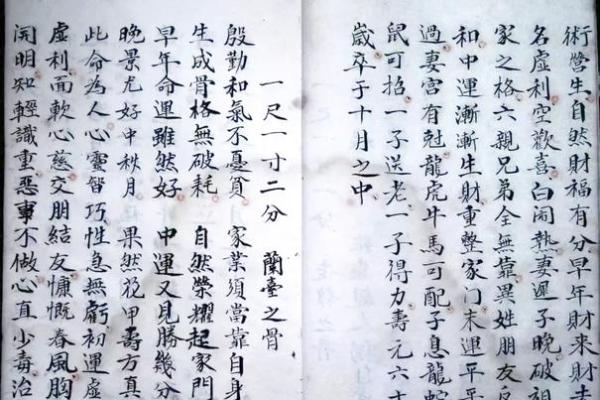 術營生自然財福有分早年財來財去
名虛利空歡喜白鬧熱妻遲子晚破祖
家之格六親兄弟全無靠異姓朋友反
和中運漸漸生財重整家門末運平平
過妻宮有尅龍虎牛馬可配子息龍蛇
鼠可招一子送老一子得力壽元六十
歲卒于十月之中
一尺一寸二分 蘭臺之骨
殷勤和氣不憂貧 家業須當靠自身
生成骨格無破耗 自然榮耀起家門
早年命運雖然好 中運又見勝幾分
晚景尤好中秋月 果然花甲壽方真
此命為人心靈智巧性急無虧初運虛
虛利面軟心慈交朋結友慷慨春風胸
開明知輕識重惡事不做心直少毒治